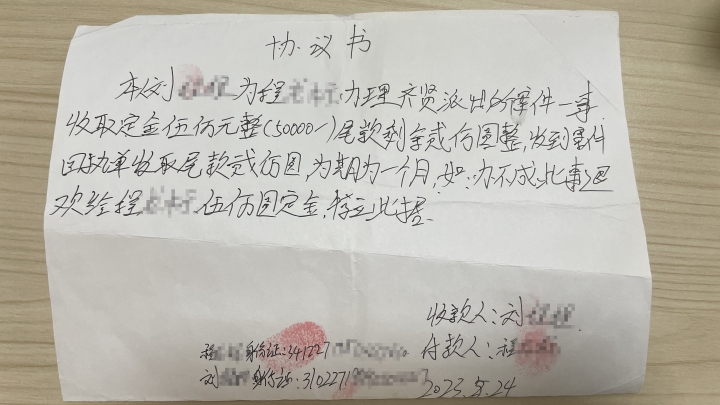 协议书
本人刘为程办理齐贤派出所案件一事
收取定金伍仟元整(50000-)尾款剩余贰仟圆整,收到案件
回执单收取尾款贰仟圆,为期为一个月,如:办不成此事退
还给程伍仟圆定金,特立此据.
收款人:刘
程身份证:341227
付款人:程
刘身份证:310227
2023.5.24